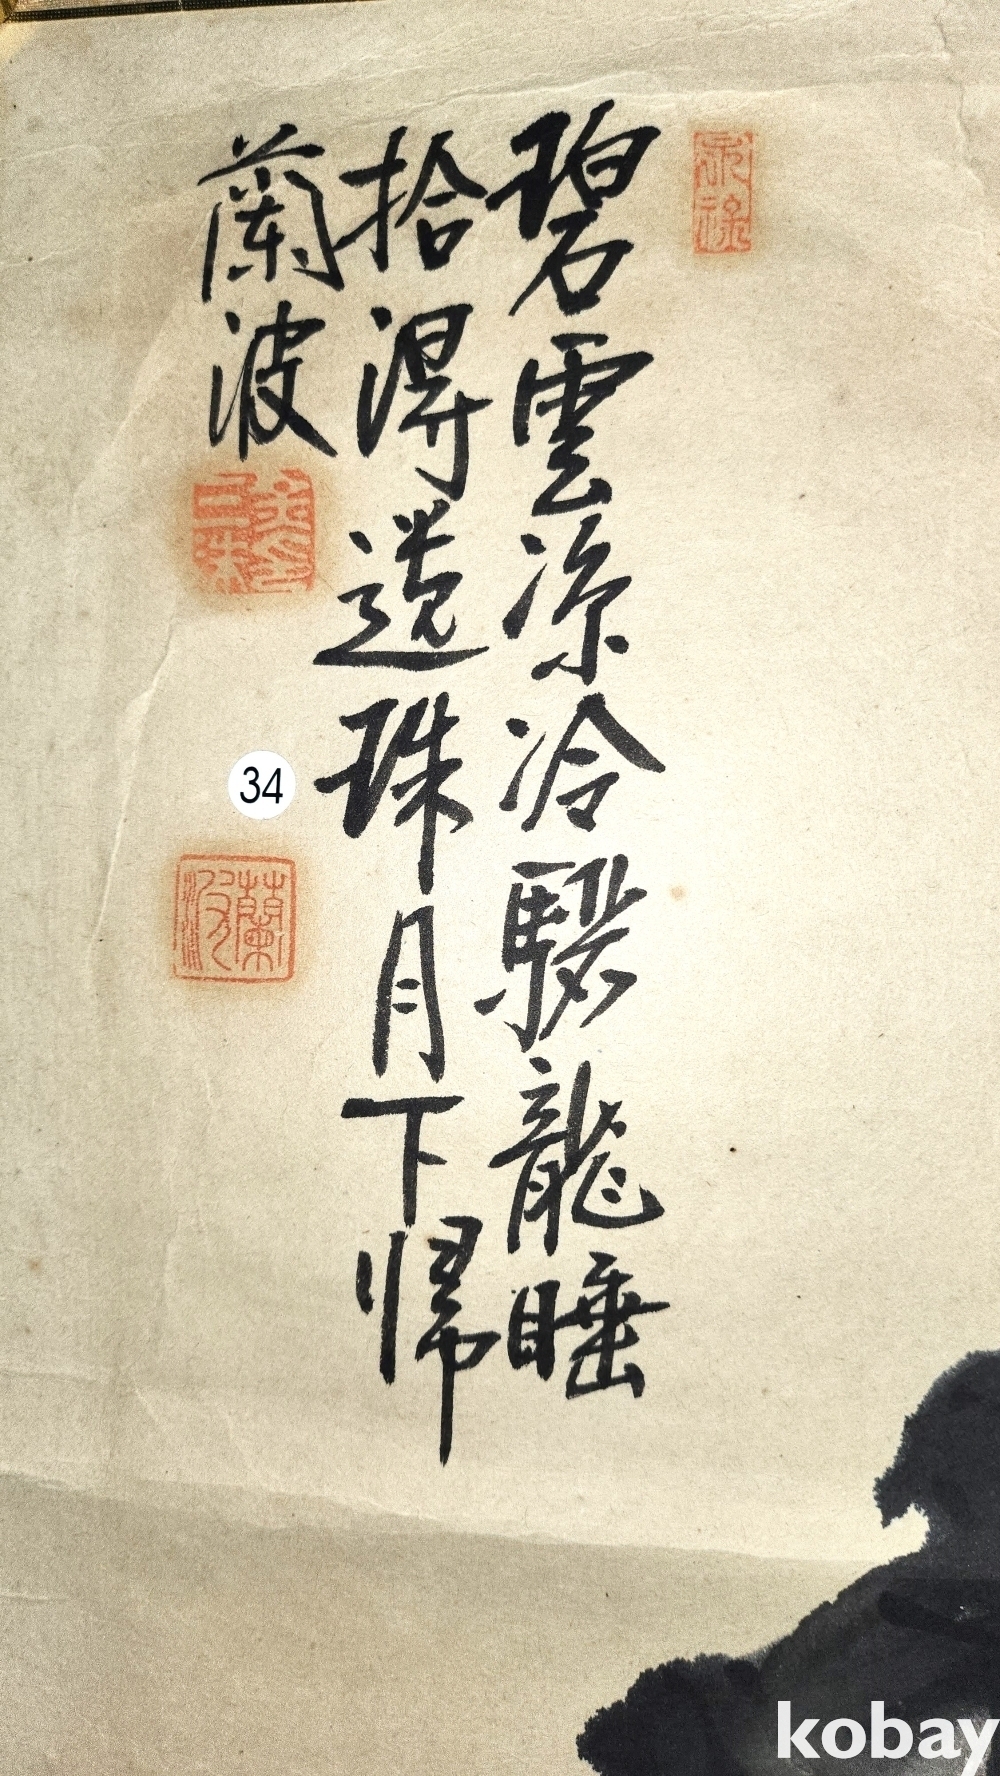 碧雲凉冷驪龍睡
拾得遺珠月下歸
蘭波
蘭波
34
kobay